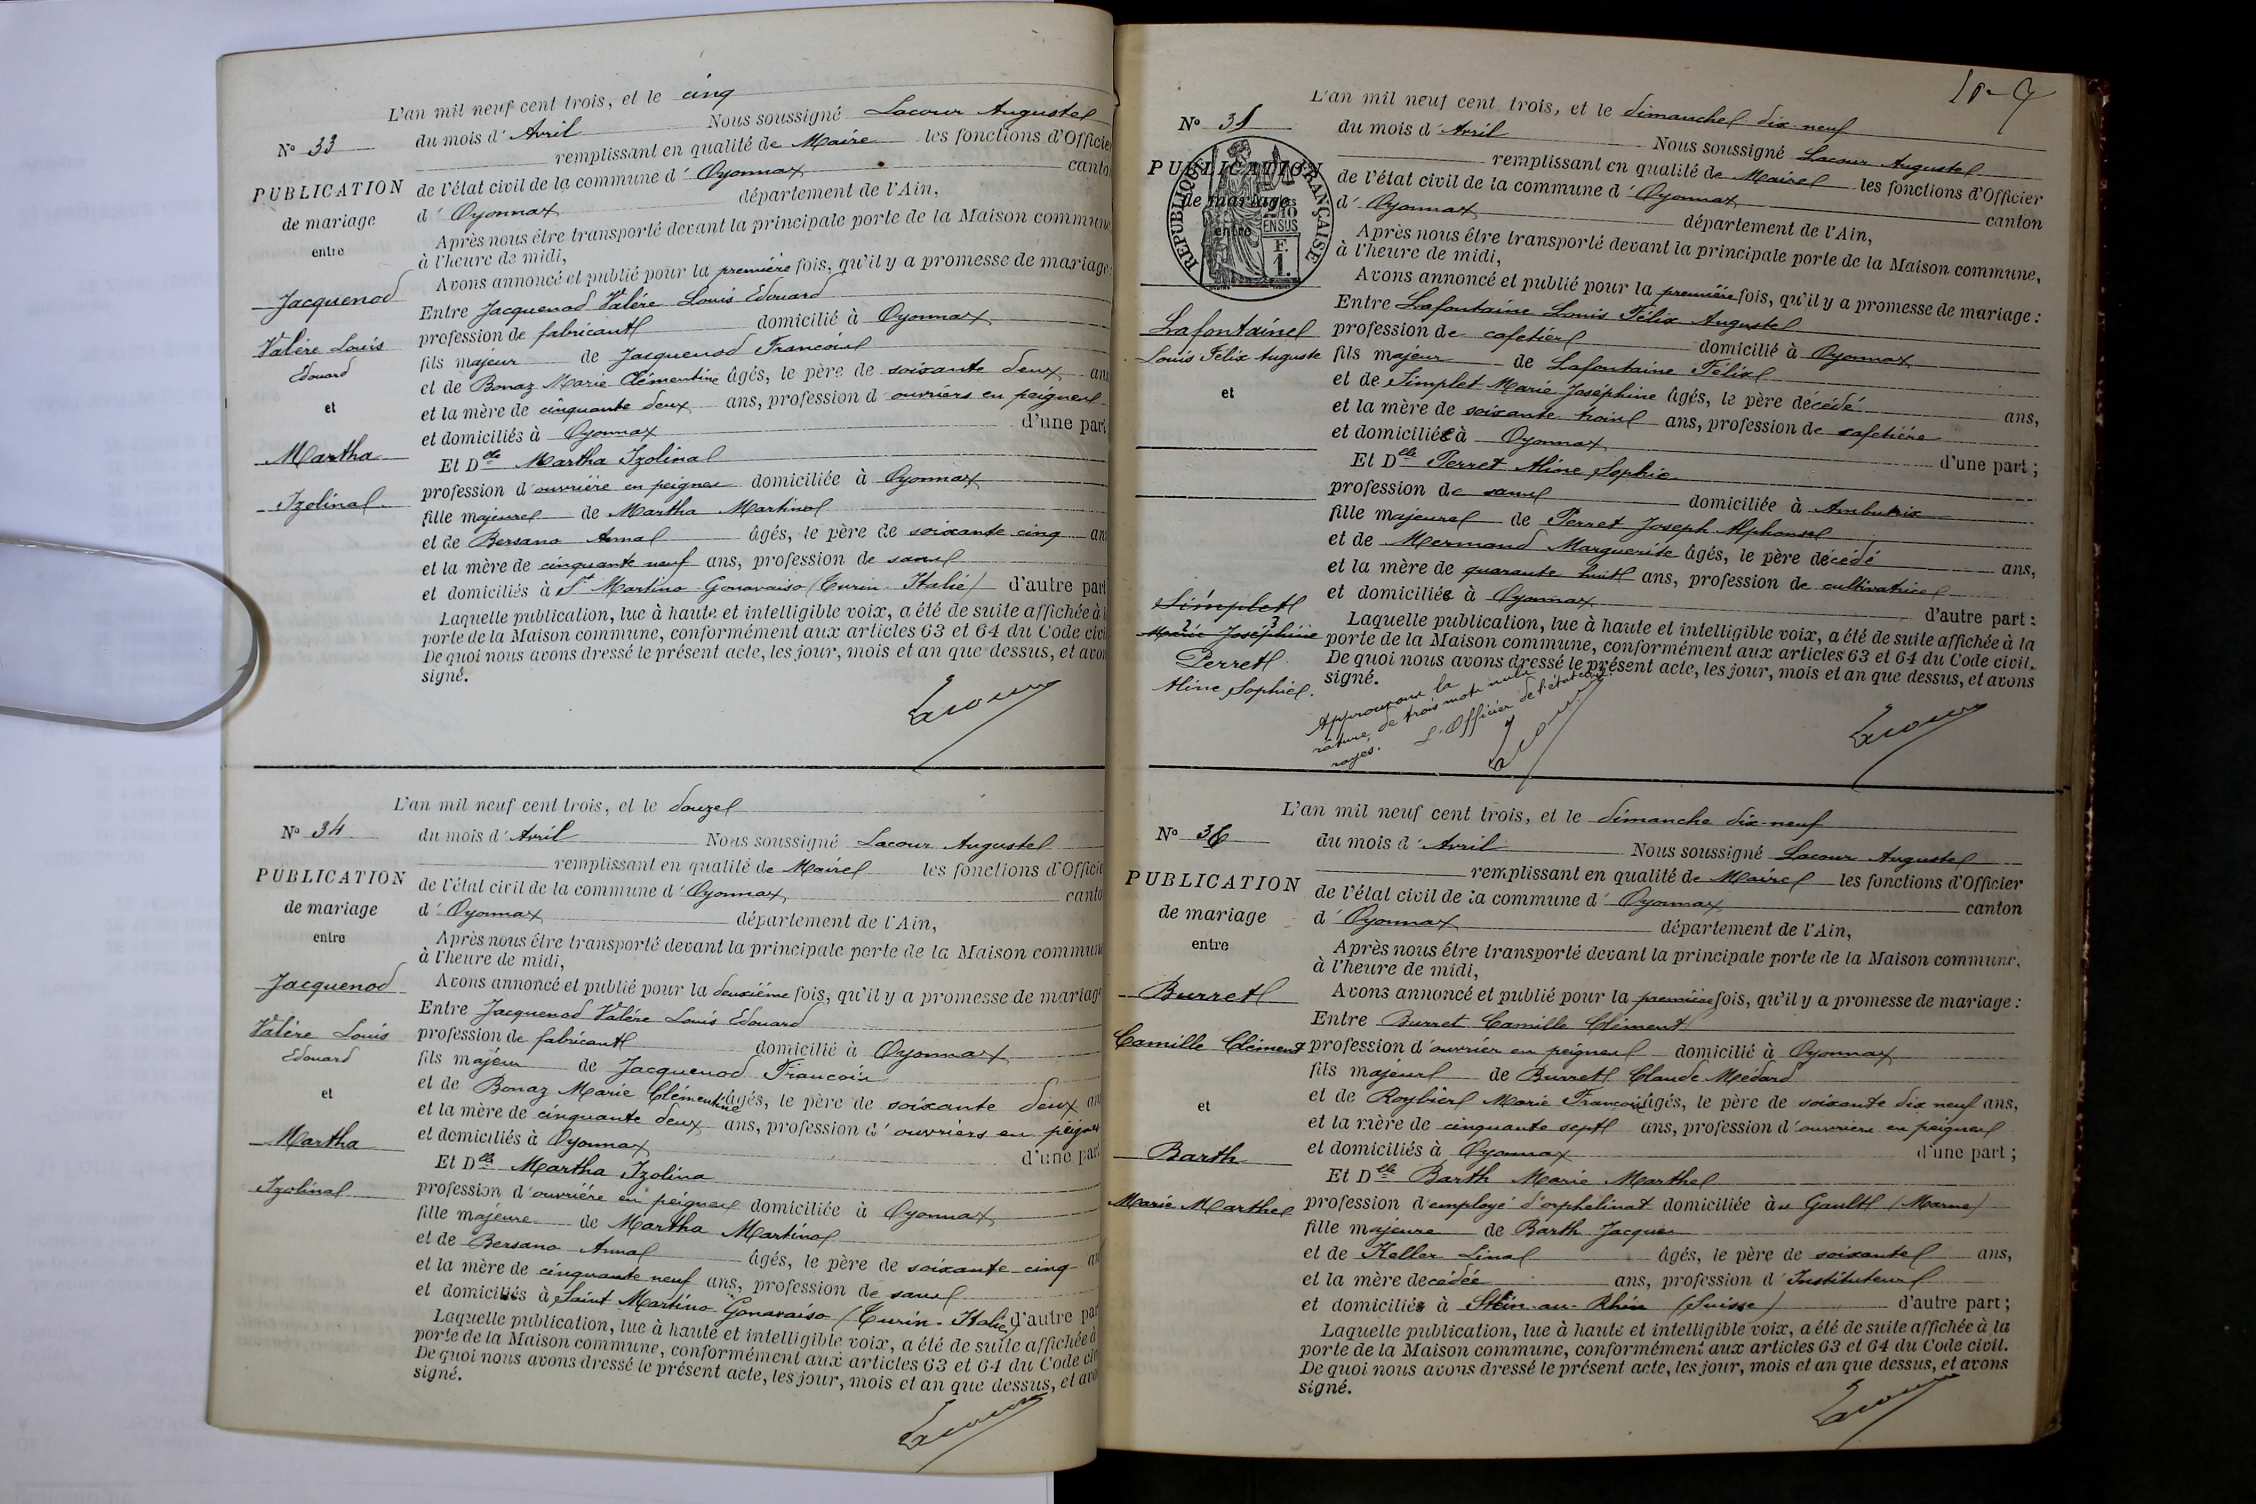 L'an mil neuf cent trois, et le cinq
N° 33 du mois d'Avril Nous soussigné Lacour Auguste
remplissant en qualité de Maire les fonctions d'Officie
PUBLICATION de l'état civil de la commune d'Oyonnax canto
de mariage d'Oyonnax département de l'Ain,
entre Après nous être transporté devant la principale porte de la Maison commune
à l'heure de midi,
Avons annoncé et publié pour la première fois, qu'il y a promesse de mariage:
Jacquenod Entre Jacquenod Valère Louis Edouard
profession de fabricant domicilié à Oyonnax
Valère Louis fils majeur de Jacquenod François
Edouard et de Bonaz Marie Clémentine âgés, le père de soixante deux ans
et et la mère de cinquante deux ans, profession d'ouvriers en peignes
et domiciliés à Oyonnax d'une part
Martha Et Delle Martha Izolina
profession d'ouvrière en peignes domiciliée à Oyonnax
Izolina fille majeure de Martha Martino
et de Bersano Anna âgés, le père de soixante cinq an
et la mère de cinquante neuf ans, profession de sans
et domiciliés à St Martino Gonavaiso (Turin Italie) d'autre part
Laquelle publication, lue à haute et intelligible voix, a été de suite affichée à l
porte de la Maison commune, conformément aux articles 63 et 64 du Code civi
De quoi nous avons dressé le présent acte, les jour, mois et an que dessus, et avon
signé.
Lacour
L'an mil neuf cent trois, et le douze
N° 34 du mois d'Avril Nous soussigné Lacour Auguste
remplissant en qualité de Maire les fonctions d'Offici
PUBLICATION de l'état civil de la commune d'Oyonnax canto
de mariage d'Oyonnax département de l'Ain,
entre Après nous être transporté devant la principale porte de la Maison commun
à l'heure de midi,
Jacquenod Avons annoncé et publié pour la deuxième fois, qu'il y a promesse de mariage
Entre Jacquenod Valère Louis Edouard
Valère Louis profession de fabricant domicilié à Oyonnax
Edouard fils majeur de Jacquenod François
et de Bonaz Marie Clémentine âgés, le père de soixante deux an
et et la mère de cinquante deux ans, profession d'ouvriers en peignes
et domiciliés à Oyonnax d'une part
Martha Et Delle Martha Izolina
Izolina profession d'ouvrière en peignes domiciliée à Oyonnax
fille majeure de Martha Martino
et de Bersano Anna âgés, le père de soixante cinq an
et la mère de cinquante neuf ans, profession de sans
et domiciliés à Saint Martino Gonavaiso (Turin. Italie) d'autre par
Laquelle publication, lue à haute et intelligible voix, a été de suite affichée à
porte de la Maison commune, conformément aux articles 63 et 64 du Code civ
De quoi nous avons dressé le présent acte, les jour, mois et an que dessus, et avo
signé.
Lacour
L'an mil neuf cent trois, et le dimanche dix-neuf
N° 35 du mois d'Avril Nous soussigné Lacour Auguste
remplissant en qualité de Maire les fonctions d'Officier
PUBLICATION de l'état civil de la commune d'Oyonnax canton
de mariage d'Oyonnax département de l'Ain,
RÉPUBLIQUE FRANÇAISE
entre Après nous être transporté devant la principale porte de la Maison commune,
à l'heure de midi,
Avons annoncé et publié pour la première fois, qu'il y a promesse de mariage:
Entre Lafontaine Louis Félix Auguste
Lafontaine profession de cafetier domicilié à Oyonnax
Louis Félix Auguste fils majeur de Lafontaine Félix
et de Simplet Marie Joséphine âgés, le père décédé ans,
et et la mère de soixante trois ans, profession de cafetière
et domiciliée à Oyonnax d'une part;
Et Delle Perret Aline Sophie
profession de sans domiciliée à Ambutrix
fille majeure de Perret Joseph Alphonse
et de Mermand Marguerite âgés, le père décédé ans,
et la mère de quarante huit ans, profession de cultivatrice
et domiciliée à Oyonnax d'autre part:
Simplet
Marie Joséphine
Perret
Aline Sophie.
Laquelle publication, lue à haute et intelligible voix, a été de suite affichée à la
porte de la Maison commune, conformément aux articles 63 et 64 du Code civil.
De quoi nous avons dressé le présent acte, les jour, mois et an que dessus, et avons
signé.
Approuvons la
rature de trois mots nuls
rayés. L'Officier de l'état civil
Lacour
Lacour
L'an mil neuf cent trois, et le dimanche dix-neuf
N° 36 du mois d'Avril Nous soussigné Lacour Auguste
remplissant en qualité de Maire les fonctions d'Officier
PUBLICATION de l'état civil de la commune d'Oyonnax canton
de mariage d'Oyonnax département de l'Ain,
entre Après nous être transporté devant la principale porte de la Maison commune,
à l'heure de midi,
Burret Avons annoncé et publié pour la première fois, qu'il y a promesse de mariage:
Entre Burret Camille Clément
Camille Clément profession d'ouvrier en peignes domicilié à Oyonnax
fils majeur de Burret Claude Médard
et de Roybier Marie Françoise âgés, le père de soixante dix neuf ans,
et et la mère de cinquante sept ans, profession d'ouvriers en peignes
et domiciliés à Oyonnax d'une part;
Barth Et Delle Barth Marie Marthe
Marie Marthe profession d'employé d'orphélinat domiciliée au Gault (Marne)
fille majeure de Barth Jacques
et de Keller Lina âgés, le père de soixante ans,
et la mère decédée ans, profession d'Instituteur
et domiciliés à Stein-au-Rhin (Suisse) d'autre part;
Laquelle publication, lue à haute et intelligible voix, a été de suite affichée à la
porte de la Maison commune, conformément aux articles 63 et 64 du Code civil.
De quoi nous avons dressé le présent acte, les jour, mois et an que dessus, et avons
signé.
Lacour